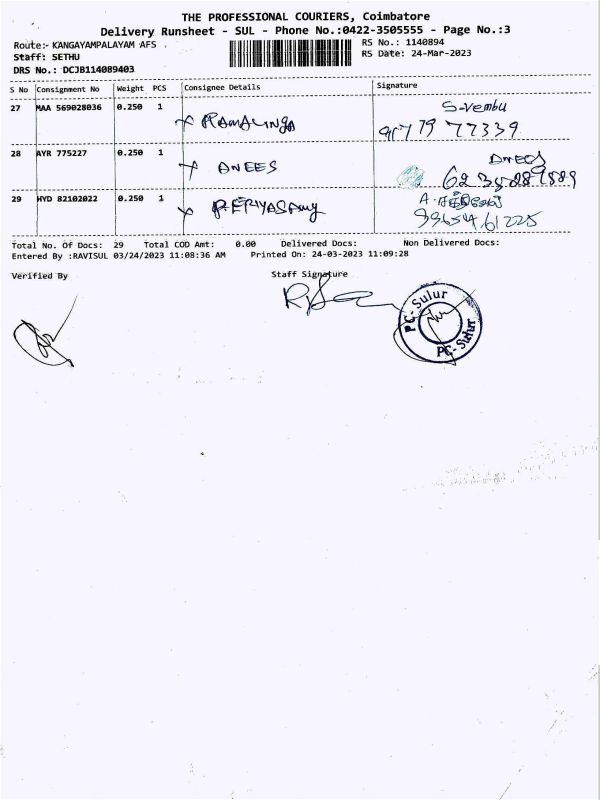 THE PROFESSIONAL COURIERS, Coimbatore
Delivery Runsheet - SUL - Phone No.:0422-3505555 - Page No.:3
Route:- KANGAYAMPALAYAM AFS
RS No.: 1140894
Staff: SETHU
RS Date: 24-Mar-2023
DRS No.: DCJB114089403
S No Consignment No Weight PCS Consignee Details Signature
27 MAA 569028036 0.250 1 RAMALINGA S-vembu
77339
28 AYR 775227 0.250 1 ANEES Anees
29 HYD 82102022 0.250 1 PERIYASAmy A.
Total No. Of Docs: 29 Total COD Amt: 0.00 Delivered Docs: Non Delivered Docs:
Entered By :RAVISUL 03/24/2023 11:08:36 AM Printed On: 24-03-2023 11:09:28
Verified By Staff Signature
PC- Sulur
PC- Sulur